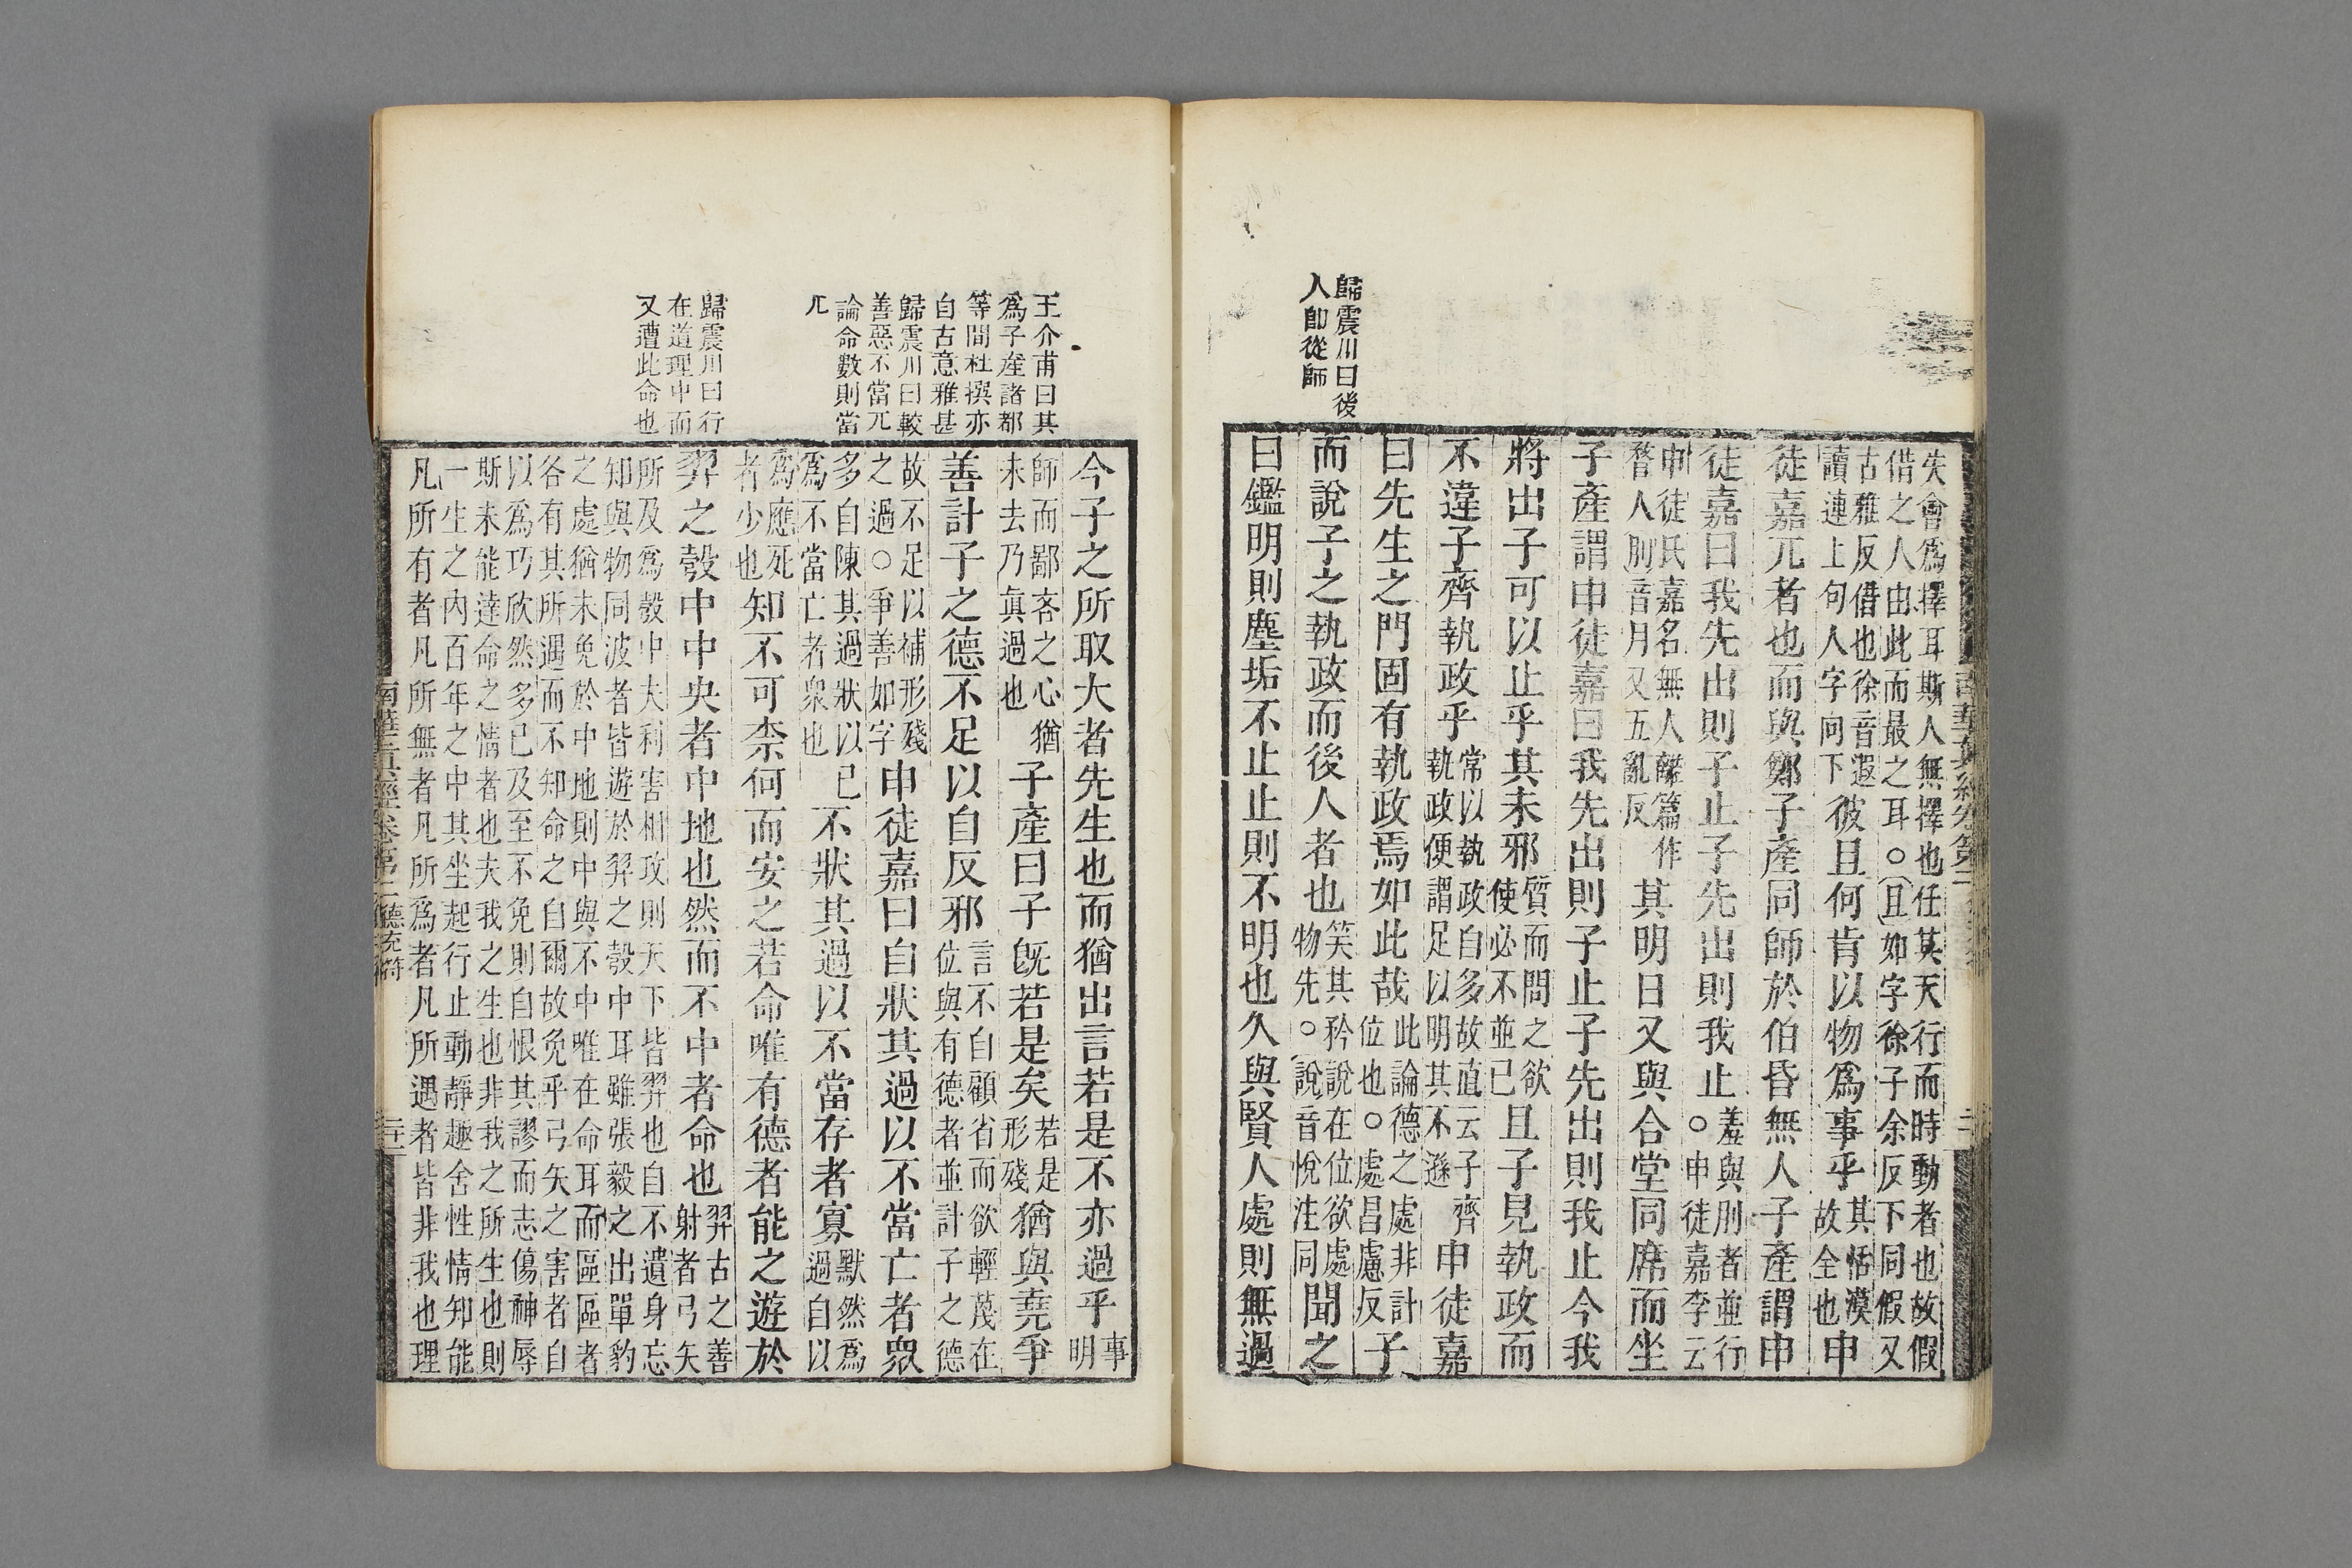 歸震川曰後
人卽從師
失會爲擇耳斯人無擇也任其天行而時動者也故假
借之人由此而最之耳○且如字徐子余反下同假又
古雅反借也徐音遐
讀連上句人字向下
彼且何肯以物爲事乎
其恬漠
故全也
申
徒嘉兀者也而與鄭子產同師於伯昏無人子產謂申
徒嘉曰我先出則子止子先出則我止
羞與刖者並行
○申徒嘉李云
申徒氏嘉名無人雜篇作
瞀人刖音月又五亂反
其明日又與合堂同席而坐
子產謂申徒嘉曰我先出則子止子先出則我止今我
將出子可以止乎其未邪
質而問之欲
使必不並已
且子見執政而
不違子齊執政乎
常以執政自多故直云子齊
執政便謂足以明其不遜
申徒嘉
曰先生之門固有執政焉如此哉
此論德之處非計
位也○處昌慮反
子
而說子之執政而後人者也
笑其矜說在位欲處
物先○說音悅注同
聞之
曰鑑明則塵垢不止止則不明也久與賢人處則無過
王介甫曰其
爲子產諸都
等間杜撰亦
自古意雅甚
歸震川曰較
善惡不當兀
論命數則當
兀
歸震川曰行
在道理中而
又遭此命也
今子之所取大者先生也而猶出言若是不亦過乎
事
明
師而鄙吝之心猶
未去乃眞過也
子產曰子旣若是矣
若是
形殘
猶與堯爭
善計子之德不足以自反邪
言不自顧省而欲輕蔑在
位與有德者並計子之德
故不足以補形殘
之過○爭善如字
申徒嘉曰自狀其過以不當亡者衆
多自陳其過狀以已
爲不當亡者衆也
不狀其過以不當存者寡
默然爲
過自以
爲應死
者少也
知不可柰何而安之若命唯有德者能之遊於
羿之彀中中央者中地也然而不中者命也
羿古之善
射者弓矢
所及爲彀中夫利害相攻則天下皆羿也自不遺身忘
知與物同波者皆遊於羿之彀中耳雖張毅之出單豹
之處猶未免於中地則中與不中唯在命耳而區區者
各有其所遇而不知命之自爾故免乎弓矢之害者自
以爲巧欣然多已及至不免則自恨其謬而志傷神辱
斯未能達命之情者也夫我之生也非我之所生也則
一生之內百年之中其坐起行止動靜趣舍性情知能
凡所有者凡所無者凡所爲者凡所遇者皆非我也理
南華眞經卷第二德充符